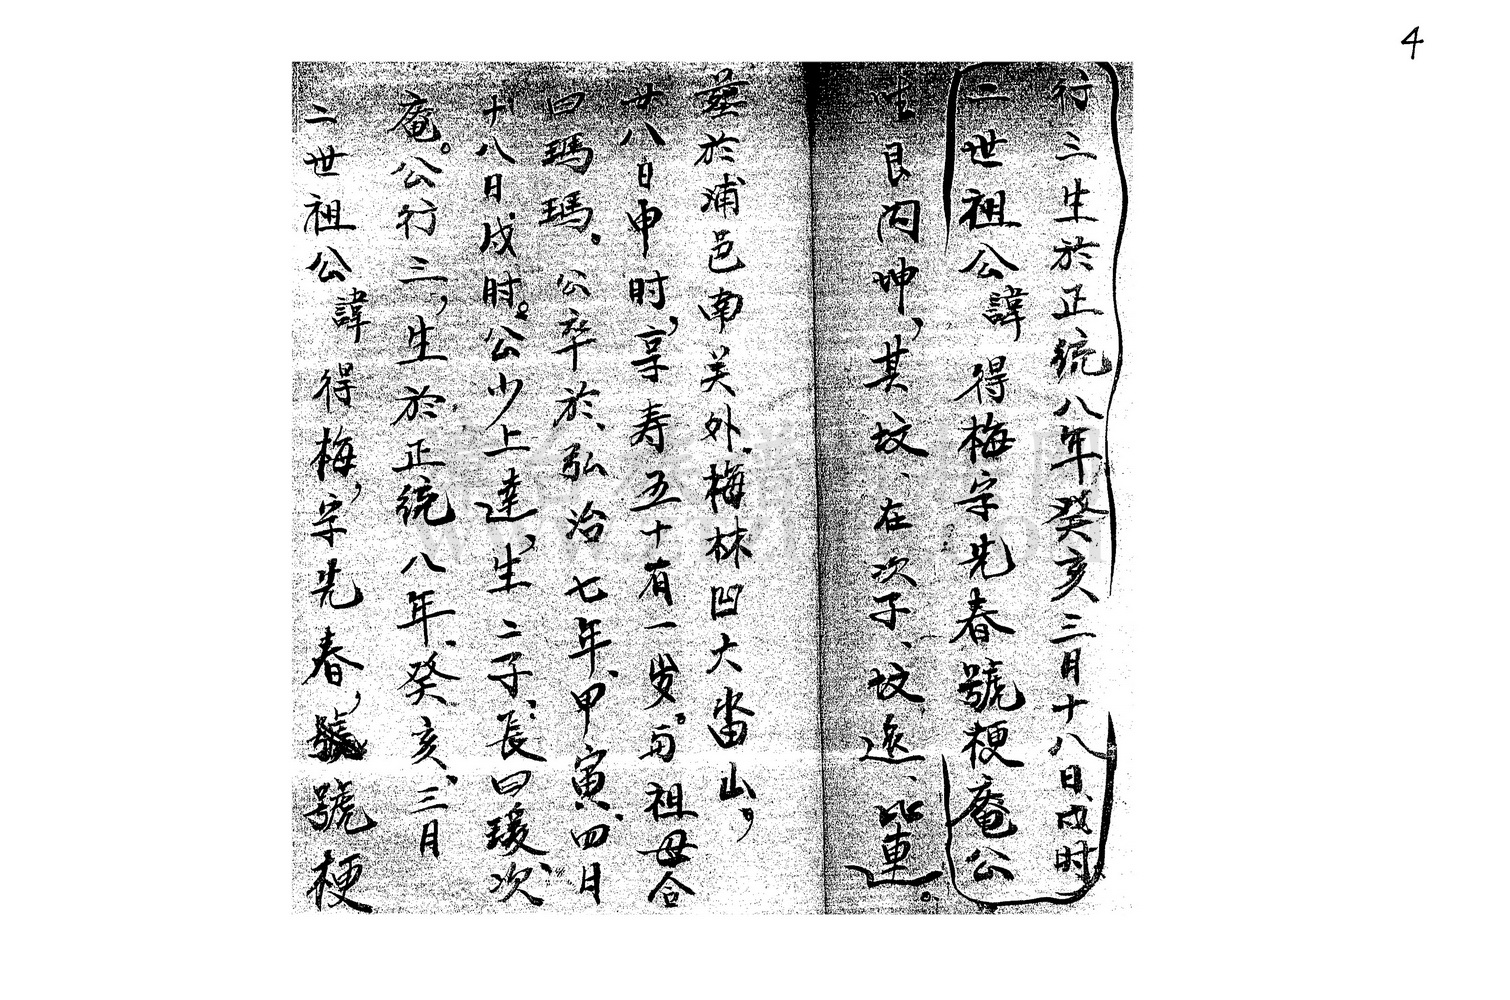 4
二世祖公諱得梅，字先春，號梗
庵。公行三，生於正統八年、癸亥、三月
十八日戌时。公少上達，生二子、長曰瑗、次
曰瑪瑪。公卒於弘治七年、甲寅、四月
廿八日申时，享寿五十有一岁。与祖母合
葬於浦邑南关外梅林凹大畬山，
坐艮向坤，其坟、在次子、坟边、比連。
二世祖公諱得梅字先春號梗庵公
行三生於正統八年癸亥三月十八日戌时